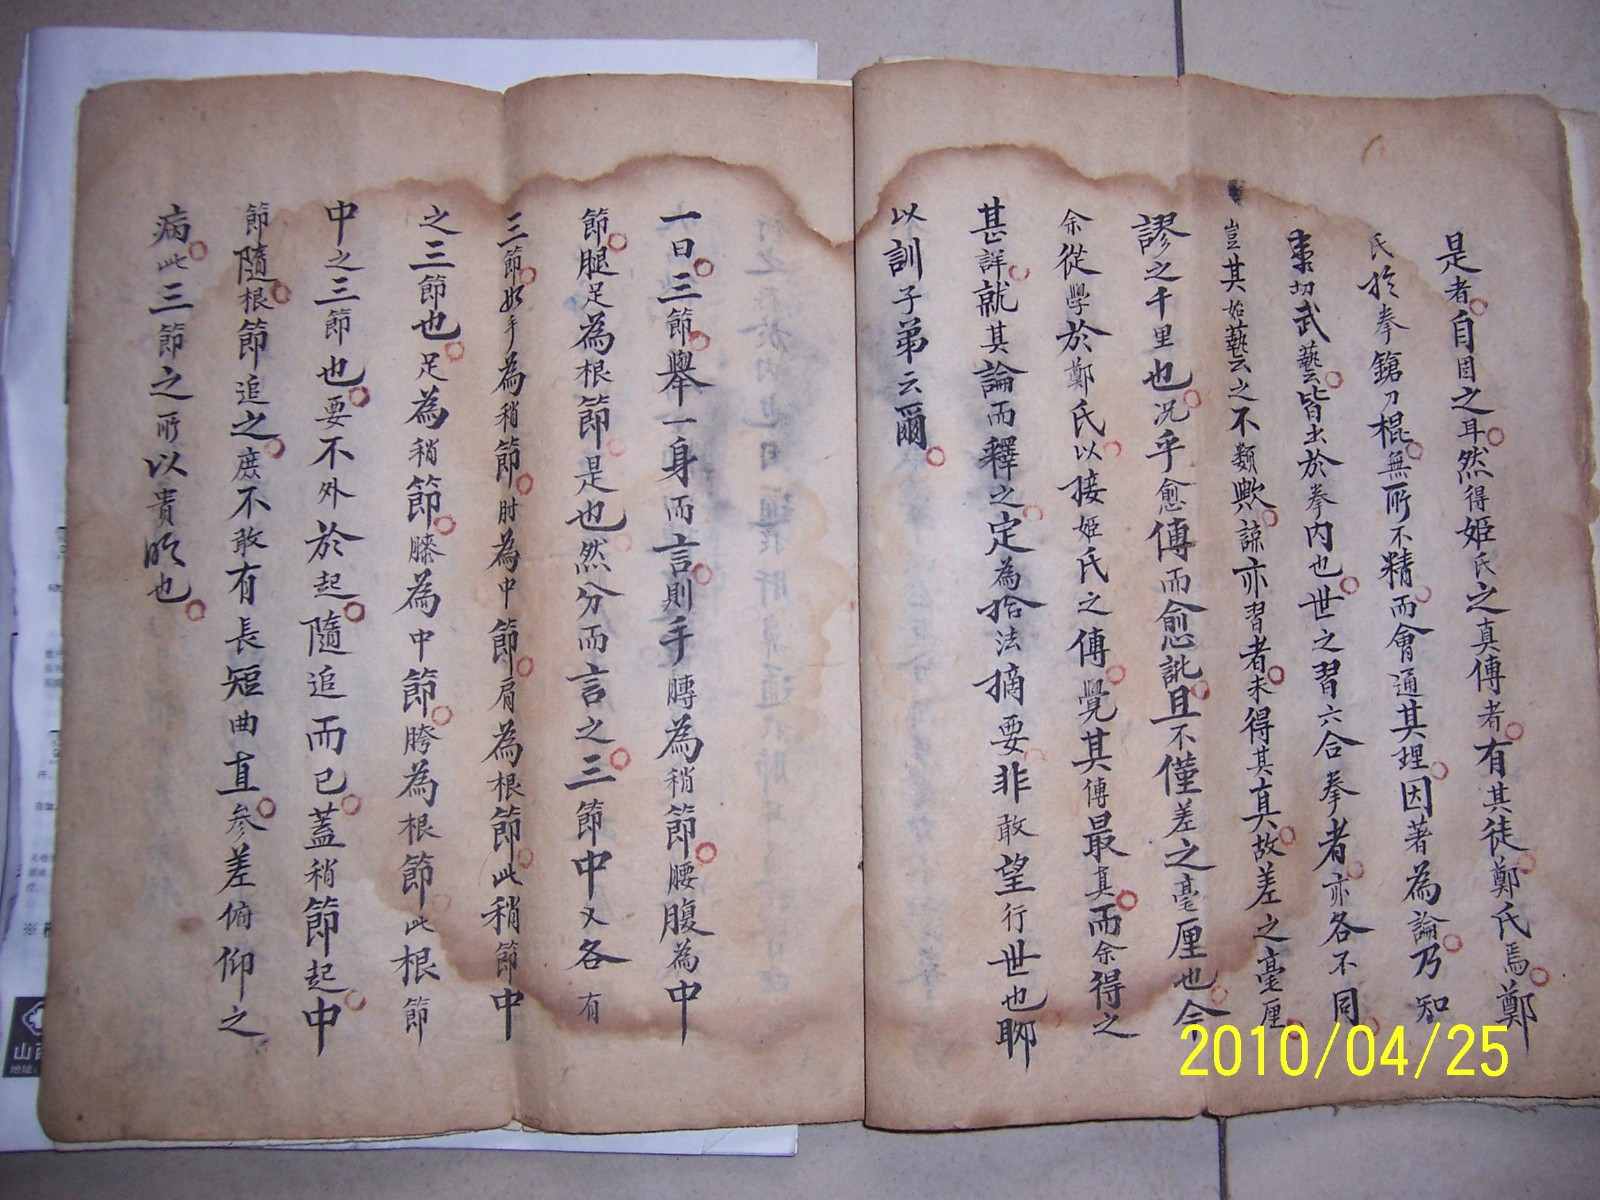 是者自因之耳然得姬氏之真傳者有其徒鄭氏焉鄭
氏於拳鎗刀棍無所不精而會通其理因著為論乃知
切武藝皆出於拳內也世之習六合拳者亦各不同
豈其始藝之不類歟諒亦習者未得其真故差之毫厘
謬之千里也况乎愈傳而愈訛且不僅差之毫厘也今
余從學於鄭氏以接姬氏之傳覺其傳最真而余得之
甚詳就其論而釋之定為拾法摘要非敢望行世也聊
以訓子弟云爾
一曰三節舉一身而言則手膊為稍節腰腹為中
節腿足為根節是也然分而言之三節中又各有
三節如手為稍節肘為中節肩為根節此稍節中
之三節也足為稍節膝為中節胯為根節此根節
中之三節也要不外於起隨追而已蓋稍節起中
節隨根節追之庶不敢有長短曲直參差俯仰之
病此三節之所以貴明也
2010/04/25
山西
地址: